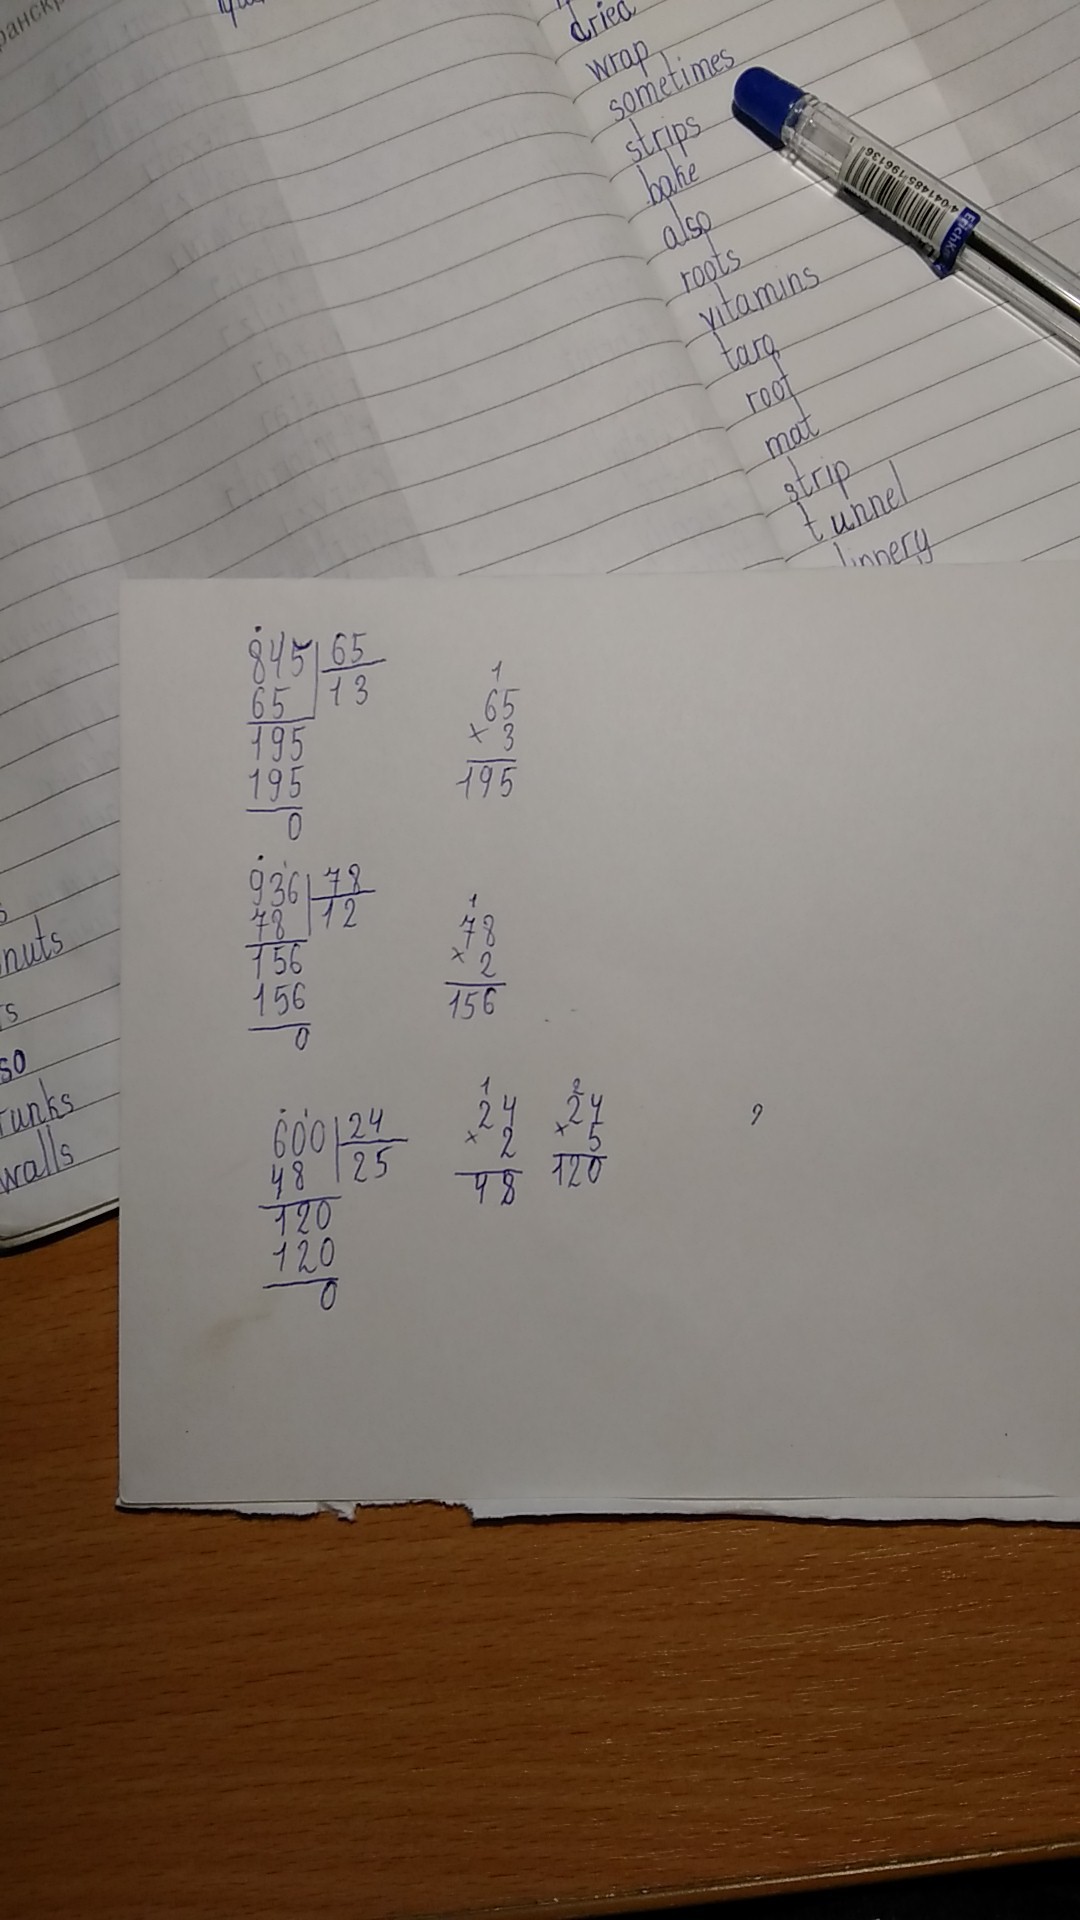 dried
wrap
sometimes
strips
bake
also
roots
vitamins
taro
root
mat
strip
tunnel
4 041485 196136
nuts
so
walls
845 | 65
65 | 13
195
195
0
1
65
× 3
195
936 | 78
78 | 12
156
156
0
1
78
× 2
156
600 | 24
48 | 25
120
120
0
1
24
× 2
48
2
24
× 5
120
?